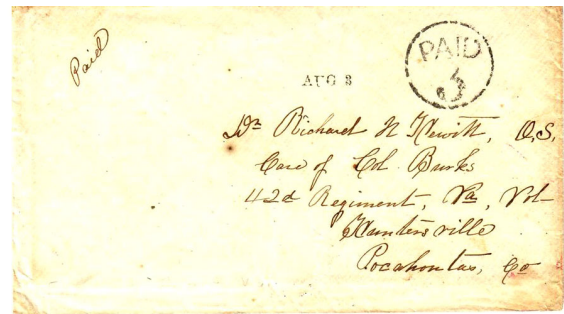 Paid
PAID
5
AUG 3
Dr Richard N Hewitt, Q,S,
Care of Col Burks
42d Regiment, Va, Vol
Huntersville
Pocahontas, Co